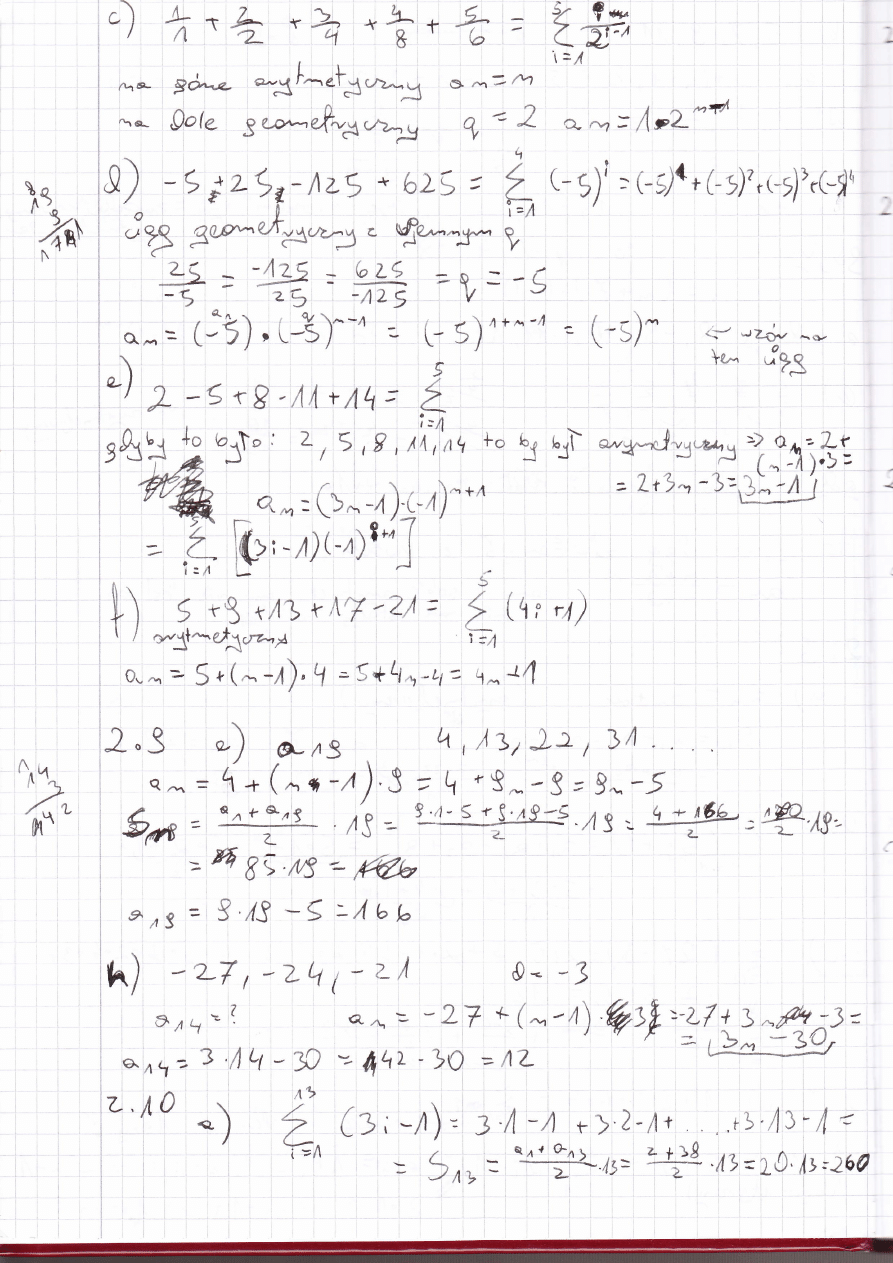 c) 1/1 + 2/2 + 3/4 + 4/8 + 5/6 = 5 ∑ i=1 i/2^(i-1)
na górze arytmetyczny an = n
na dole geometryczny q = 2 an = 1·2^(n-1)
d) -5 + 25 - 125 + 625 = 4 ∑ i=1 (-5)^i = (-5)^1 + (-5)^2 + (-5)^3 + (-5)^4
ciąg geometryczny z ujemnym q
25/-5 = -125/25 = 625/-125 = q = -5
an = (-5)·(-5)^(n-1) = (-5)^(1+n-1) = (-5)^n ← wzór na
ten ciąg
e) 2 - 5 + 8 - 11 + 14 = 5 ∑ i=1
gdyby to było: 2, 5, 8, 11, 14 to by był arytmetyczny ⇒ an = 2 +
(n-1)·3 =
= 2 + 3n - 3 = 3n - 1
an = (3n-1)·(-1)^(n+1)
= 5 ∑ i=1 [(3i-1)(-1)^(i+1)]
f) 5 + 9 + 13 + 17 - 21 = 5 ∑ i=1 (4i+1)
arytmetyczny
an = 5 + (n-1)·4 = 5 + 4n - 4 = 4n + 1
2.9 e) a19 4, 13, 22, 31 ....
14
3
42
an = 4 + (n-1)·9 = 4 + 9n - 9 = 9n - 5
= (a1 + a19)/2 · 19 = (9·1-5 + 9·19-5)/2 · 19 = (4 + 166)/2 = 170/2 · 19 =
= 85·19 =
a19 = 9·19 - 5 = 166
h) -27, -24, -21 d = -3
a14 = ? an = -27 + (n-1)·3 = -27 + 3n - 3 =
= 3n - 30
a14 = 3·14 - 30 = 42 - 30 = 12
2.10 a) 13 ∑ i=1 (3i-1) = 3·1-1 + 3·2-1 + .... + 3·13-1 =
= S13 = (a1 + a13)/2 · 13 = (2 + 38)/2 · 13 = 20·13 = 260